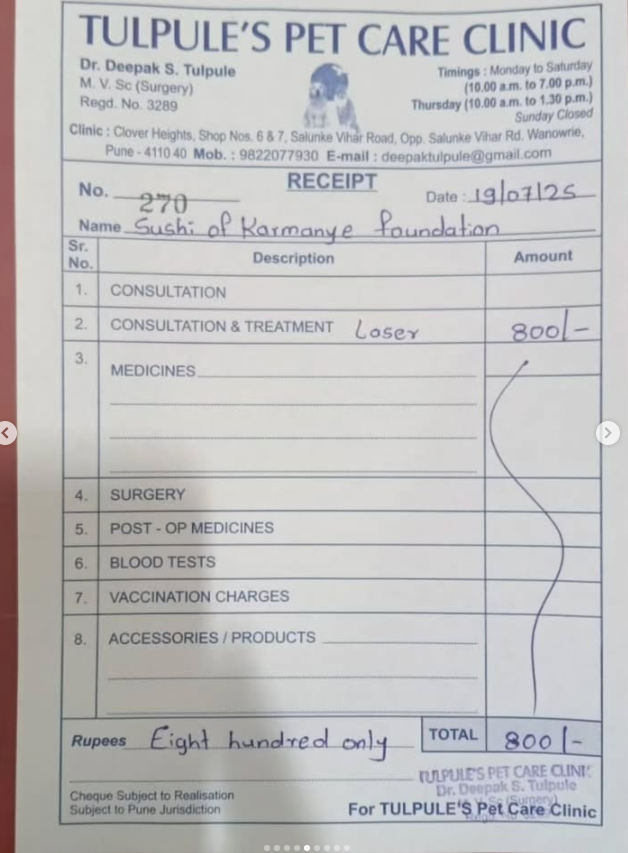 TULPULE'S PET CARE CLINIC
Dr. Deepak S. Tulpule
M. V. Sc (Surgery)
Regd. No. 3289
Timings : Monday to Saturday
(10.00 a.m. to 7.00 p.m.)
Thursday (10.00 a.m. to 1.30 p.m.)
Sunday Closed
Clinic : Clover Heights, Shop Nos. 6 & 7, Salunke Vihar Road, Opp. Salunke Vihar Rd. Wanowrie,
Pune - 4110 40 Mob. : 9822077930 E-mail : deepaktulpule@gmail.com
RECEIPT
No. 270
Date : 19/07/25
Name Sushi of Karmanye foundation
Sr. No. Description Amount
1. CONSULTATION
2. CONSULTATION & TREATMENT Laser 800/-
3. MEDICINES
4. SURGERY
5. POST - OP MEDICINES
6. BLOOD TESTS
7. VACCINATION CHARGES
8. ACCESSORIES / PRODUCTS
Rupees Eight hundred only TOTAL 800/-
TULPULE'S PET CARE CLINIC
Dr. Deepak S. Tulpule
Cheque Subject to Realisation
Subject to Pune Jurisdiction
For TULPULE'S Pet Care Clinic